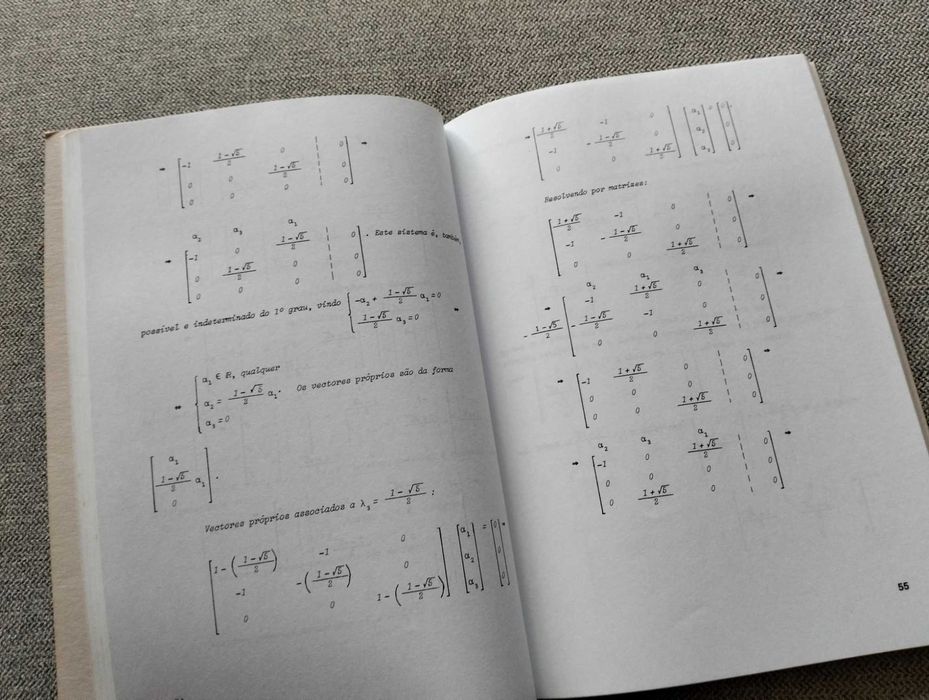 → [ -1 (1-√5)/2 0 ¦ 0 ] →
[ 0 0 (1-√5)/2 ¦ 0 ]
[ 0 0 0 ¦ 0 ]
α₂ α₃ α₁
→ [ -1 0 (1-√5)/2 ¦ 0 ] . Este sistema é, também,
[ 0 (1-√5)/2 0 ¦ 0 ]
[ 0 0 0 ¦ 0 ]
possível e indeterminado do 1º grau, vindo { -α₂ + (1-√5)/2 α₁ = 0
(1-√5)/2 α₃ = 0 ⇔
⇔ { α₁ ∈ R, qualquer
α₂ = (1-√5)/2 α₁ . Os vectores próprios são da forma
α₃ = 0
[ α₁ ]
[ (1-√5)/2 α₁ ] .
[ 0 ]
Vectores próprios associados a λ₃ = (1-√5)/2 :
[ 1-((1-√5)/2) -1 0 ] [ α₁ ] = [ 0 ] →
[ -1 -((1-√5)/2) 0 ] [ α₂ ] [ 0 ]
[ 0 0 1-((1-√5)/2) ] [ α₃ ] [ 0 ]
→ [ (1+√5)/2 -1 0 ] [ α₁ ] [ 0 ] .
[ -1 -(1-√5)/2 0 ] [ α₂ ] [ 0 ]
[ 0 0 (1+√5)/2 ] [ α₃ ] [ 0 ]
Resolvendo por matrizes:
[ (1+√5)/2 -1 0 ¦ 0 ] →
[ -1 -(1-√5)/2 0 ¦ 0 ]
[ 0 0 (1+√5)/2 ¦ 0 ]
α₂ α₁ α₃
[ -1 (1+√5)/2 0 ¦ 0 ] →
-(1-√5)/2 [ -(1-√5)/2 -1 0 ¦ 0 ]
[ 0 0 (1+√5)/2 ¦ 0 ]
→ [ -1 (1+√5)/2 0 ¦ 0 ] →
[ 0 0 0 ¦ 0 ]
[ 0 0 (1+√5)/2 ¦ 0 ]
α₂ α₃ α₁
→ [ -1 0 (1+√5)/2 ¦ 0 ] →
[ 0 0 0 ¦ 0 ]
[ 0 (1+√5)/2 0 ¦ 0 ]
55